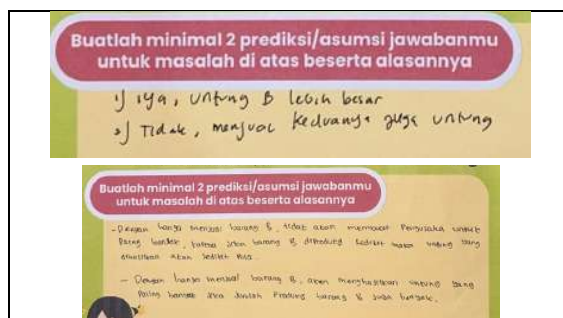 Buatlah minimal 2 prediksi/asumsi jawabanmu
untuk masalah di atas beserta alasannya
1) iya, untung B lebih besar
2) Tidak, menjual keduanya juga untung
Buatlah minimal 2 prediksi/asumsi jawabanmu
untuk masalah di atas beserta alasannya
- Dengan hanya menjual barang B, tidak akan membuat Pengusaha untuk
Paling banyak, karena jika barang B diproduksi sedikit maka untung yang
dihasilkan akan sedikit
- Dengan hanya menjual barang B, akan menghasilkan untung yang
Paling banyak jika Jumlah Produksi barang B juga banyak.